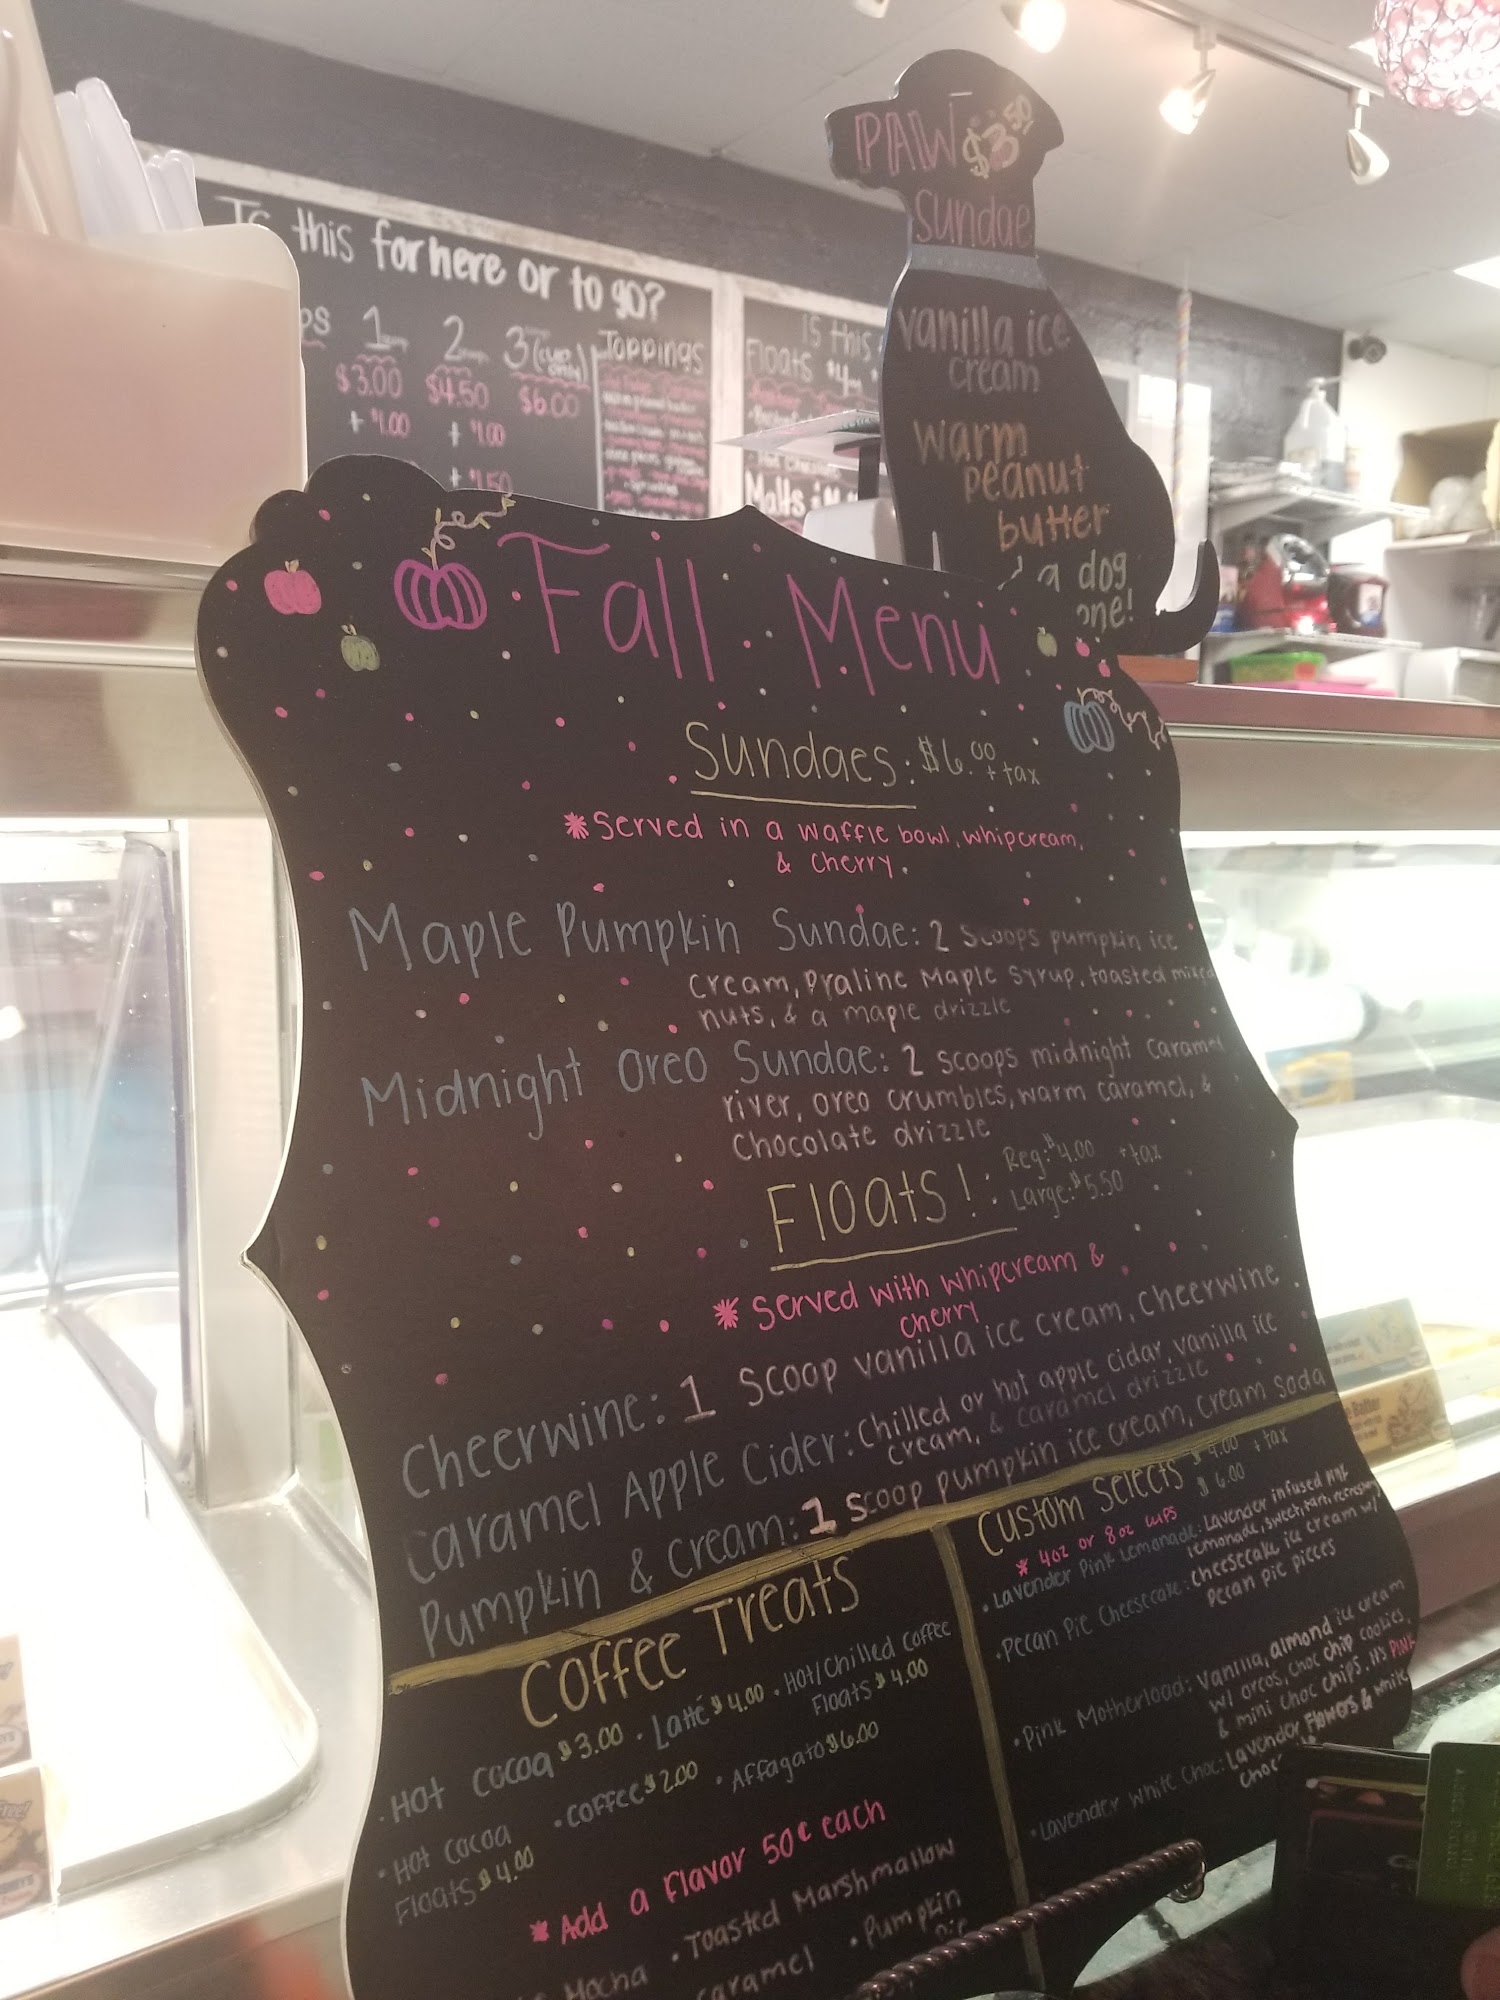 PAW $3.50
Sundae
vanilla ice
cream
warm
peanut
butter
a dog
one!
this for here or to go?
1
2
3
Toppings
$3.00
$4.50
$6.00
+ $1.00
+ $1.00
IS this
Floats
Malts
Fall Menu
Sundaes: $6.00 + tax
*Served in a waffle bowl, whipcream,
& cherry.
Maple Pumpkin Sundae: 2 Scoops pumpkin ice
cream, praline maple syrup, toasted mixed
nuts, & a maple drizzle
Midnight Oreo Sundae: 2 scoops midnight caramel
river, oreo crumbles, warm caramel, &
Chocolate drizzle
Floats!: Reg: $4.00 + tax
Large: $5.50
* Served with whipcream &
cherry
Cheerwine: 1 Scoop vanilla ice cream, cheerwine
Caramel Apple Cider: Chilled or hot apple cidar, vanilla ice
cream, & caramel drizzle
Pumpkin & Cream: 1 Scoop pumpkin ice cream, cream soda
Coffee Treats
• Hot cocoa $3.00 • Latté $4.00 • Hot/Chilled Coffee
Floats $4.00
• Hot cocoa
Floats $4.00
• coffee $2.00 • Affagato $6.00
* Add a Flavor 50¢ each
Mocha • Toasted Marshmallow
caramel • Pumpkin
pie
Custom Selects $4.00 + tax
$6.00
* 4oz or 8oz cups
• Lavender Pink Lemonade: Lavender infused
lemonade, sweet, tart, refreshing
• Pecan Pie Cheesecake: cheesecake ice cream w/
pecan pie pieces
• Pink Motherload: Vanilla, almond ice cream
w/ oreos, choc chip cookies,
& mini choc chips. It's PINK
• Lavender White Choc: Lavender Flowers & white
choc